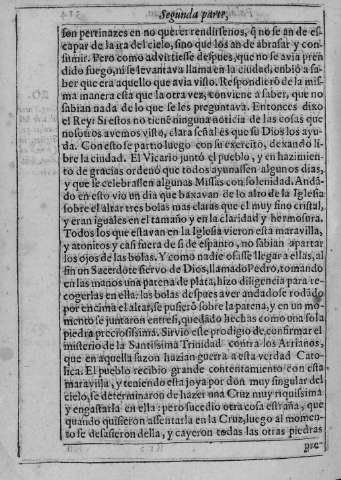 Segunda parte,
son pertinazes en no querer rendirsenos, q̃ no se an de es-
capar de la ira del cielo, sino que los an de abrasar y con-
sumir. Pero como advirtiesse despues, que no se avia pren
dido fuego, ni se levantava llama en la ciudad, enbiò a sa-
ber que era aquello que avia visto. Respondierõ de la mis-
ma manera esta que la otra vez, conviene a saber, que no
sabian nada de lo que se les preguntava. Entonces dixo
el Rey: Si estos no tienē ninguna noticia de las cosas que
nosotros avemos visto, clara señal es que su Dios los ayu-
da. Con esto se partio luego con su exercito, dexando li-
bre la ciudad. El Vicario juntó el pueblo, y en hazimien-
to de gracias ordenó que todos ayunassen algunos dias,
y que se celebrassen algunas Missas con solenidad. Andã-
do en esto vio un dia que baxavan de lo alto de la Iglesia
sobre el altar tres bolas mas claras que el muy fino cristal,
y eran iguales en el tamaño y en la claridad y hermosura.
Todos los que estavan en la Iglesia vieron esta maravilla,
y atonitos y casi fuera de si de espanto, no sabian apartar
los ojos de las bolas. Y como nadie osasse llegar a ellas, al
sin un Sacerdote siervo de Dios, llamado Pedro, tomando
en las manos una patena de plata, hizo diligencia para re-
cogerlas en ella: las bolas despues aver andado se rodãdo
por encima el altar, se pusierõ sobre la patena, y en un mo-
mento se juntaron entresi, quedãdo hechas como una sola
piedra preciosissima. Sirvio este prodigio de confirmar el
misterio de la Santissima Trinidad contra los Arrianos,
que en aquella sazon hazian guerra a esta verdad Cato-
lica. El pueblo recibio grande contentamiento con esta
maravilla, y teniendo esta joya por don muy singular del
cielo, se determinaron de hazer una Cruz muy riquissima
y engastarla en ella: pero sucedio otra cosa estraña, que
quando quisieron assentarla en la Cruz, luego al momen-
to se desasieron della, y cayeron todas las otras piedras
pre-